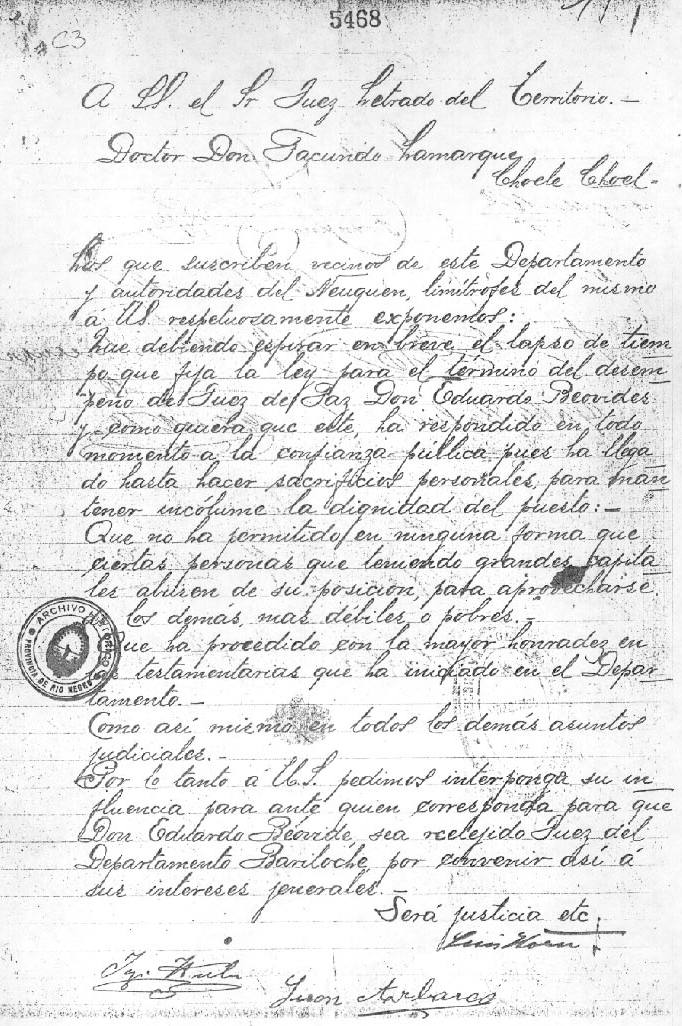 5468
C3
A SS. el Sr Juez Letrado del Territorio.—
Doctor Don Facundo Lamarque
Choele Choel-
Los que suscriben vecinos de este Departamento
y autoridades del Neuquen, limítrofes del mismo
á US respetuosamente exponemos:
Que debiendo espirar en breve el lapso de tiem
po que fija la ley para el término del desem
peño del Juez de Paz Don Eduardo Beovides
y como quiera que este, ha respondido en todo
momento a la confianza pública pues ha llega
do hasta hacer sacrificios personales, para man
tener incolume la dignidad del puesto:—
Que no ha permitido en ninguna forma que
ciertas personas que teniendo grandes capita
les abusen de su posicion, para aprovecharse,
los demás, mas débiles o pobres.-
Que ha procedido con la mayor honradez en
testamentarias que ha iniciado en el Depar-
tamento.—
Como así mismo en todos los demás asuntos
judiciales.-
Por lo tanto á U.S. pedimos interponga su in
fluencia para ante quien corresponda para que
Don Eduardo Béovide, sea reelejido Juez del
Departamento Bariloche, por convenir así á
sus intereses jenerales.—
Será justicia etc.
Luis Horn
Juan
ARCHIVO HISTORICO
PROVINCIA DE RIO NEGRO